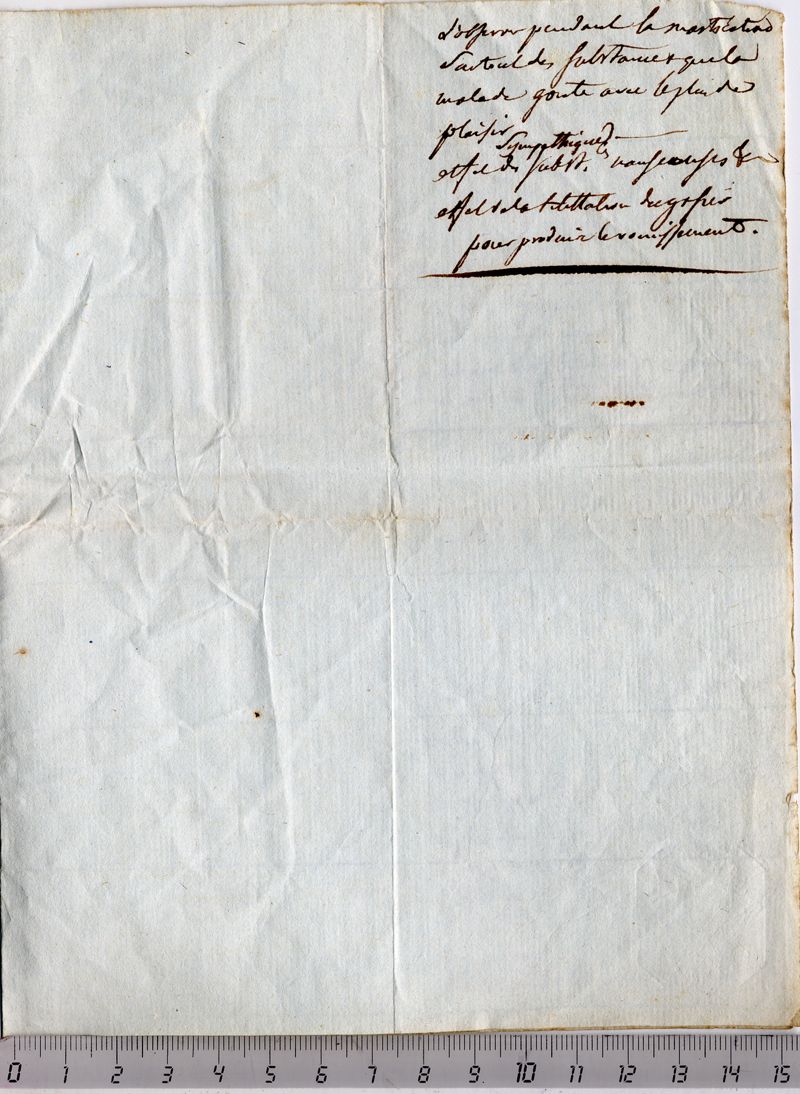 s'observer pendant la mastication
surtout des substances que le
malade goute avec le plus de
plaisir
sympathiques
effet des subst. nauseeuses &
effet de la titillation du gosier
pour produire le vomissement.
0 1 2 3 4 5 6 7 8 9 10 11 12 13 14 15